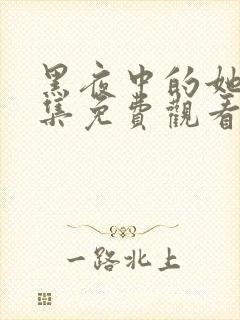 黑夜中的她
集免費觀看
一路北上